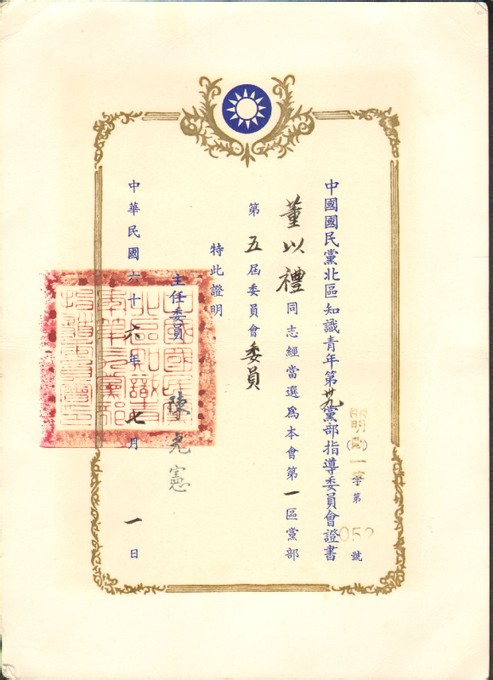 中國國民黨北區知識青年第卅九黨部指導委員會證書
(勵)一字第052號
董以禮同志經當選爲本會第一區黨部
第五屆委員會委員
特此證明
主任委員 陳光憲
中華民國六十六年七月一日